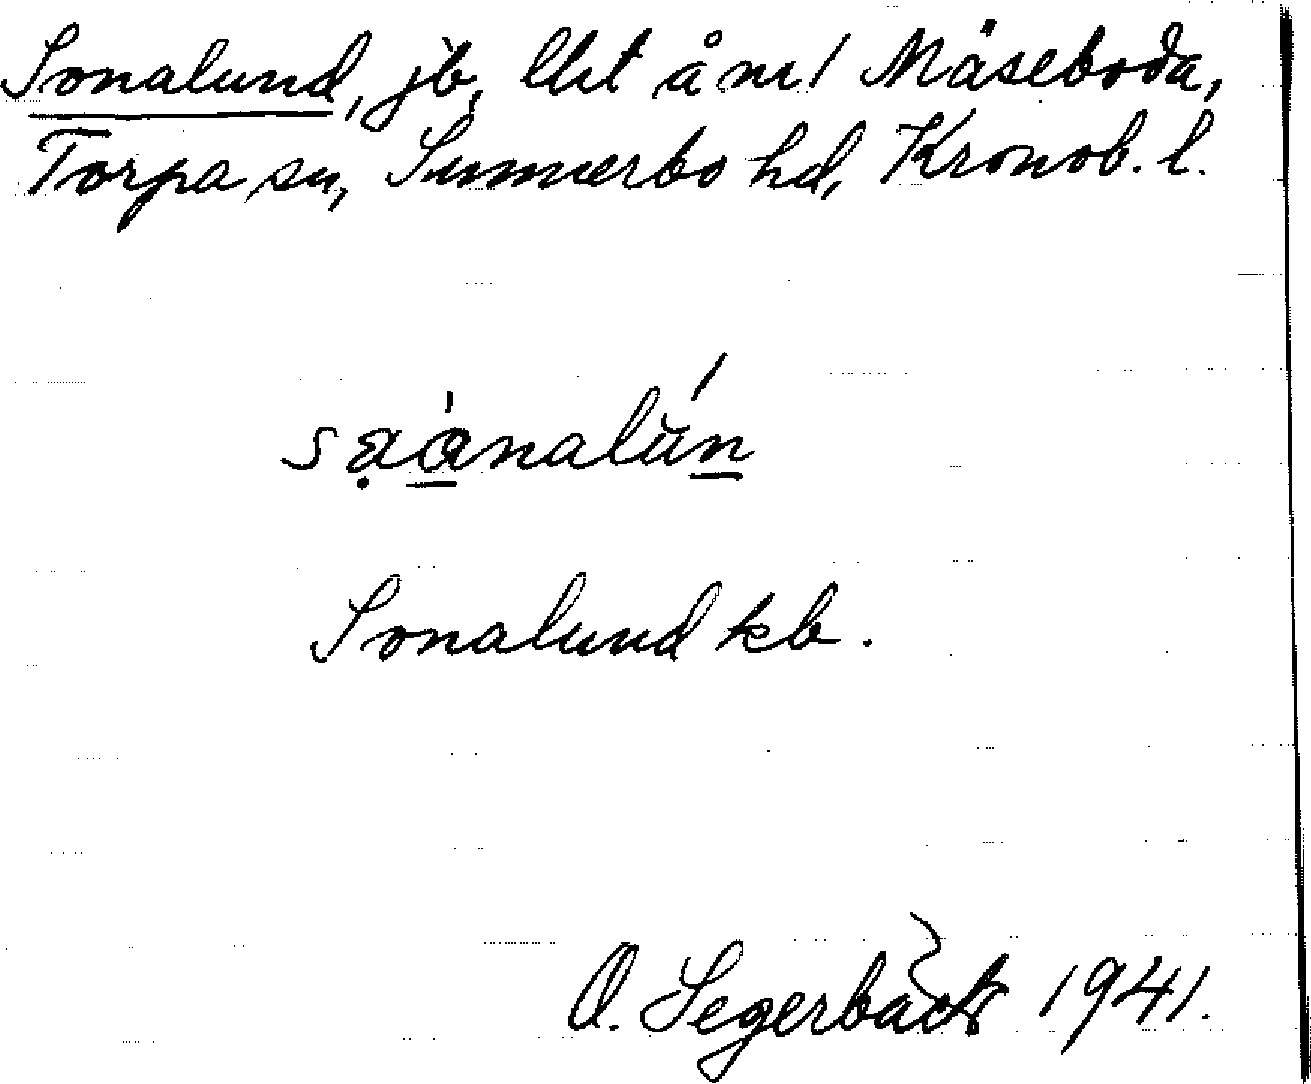 Sonalund, jb, lht å nr 1 Mäseboda,
Torpa sn, Sunnerbo hd, Kronob. l.
Sonalund kb.
O. Segerbäck 1941.